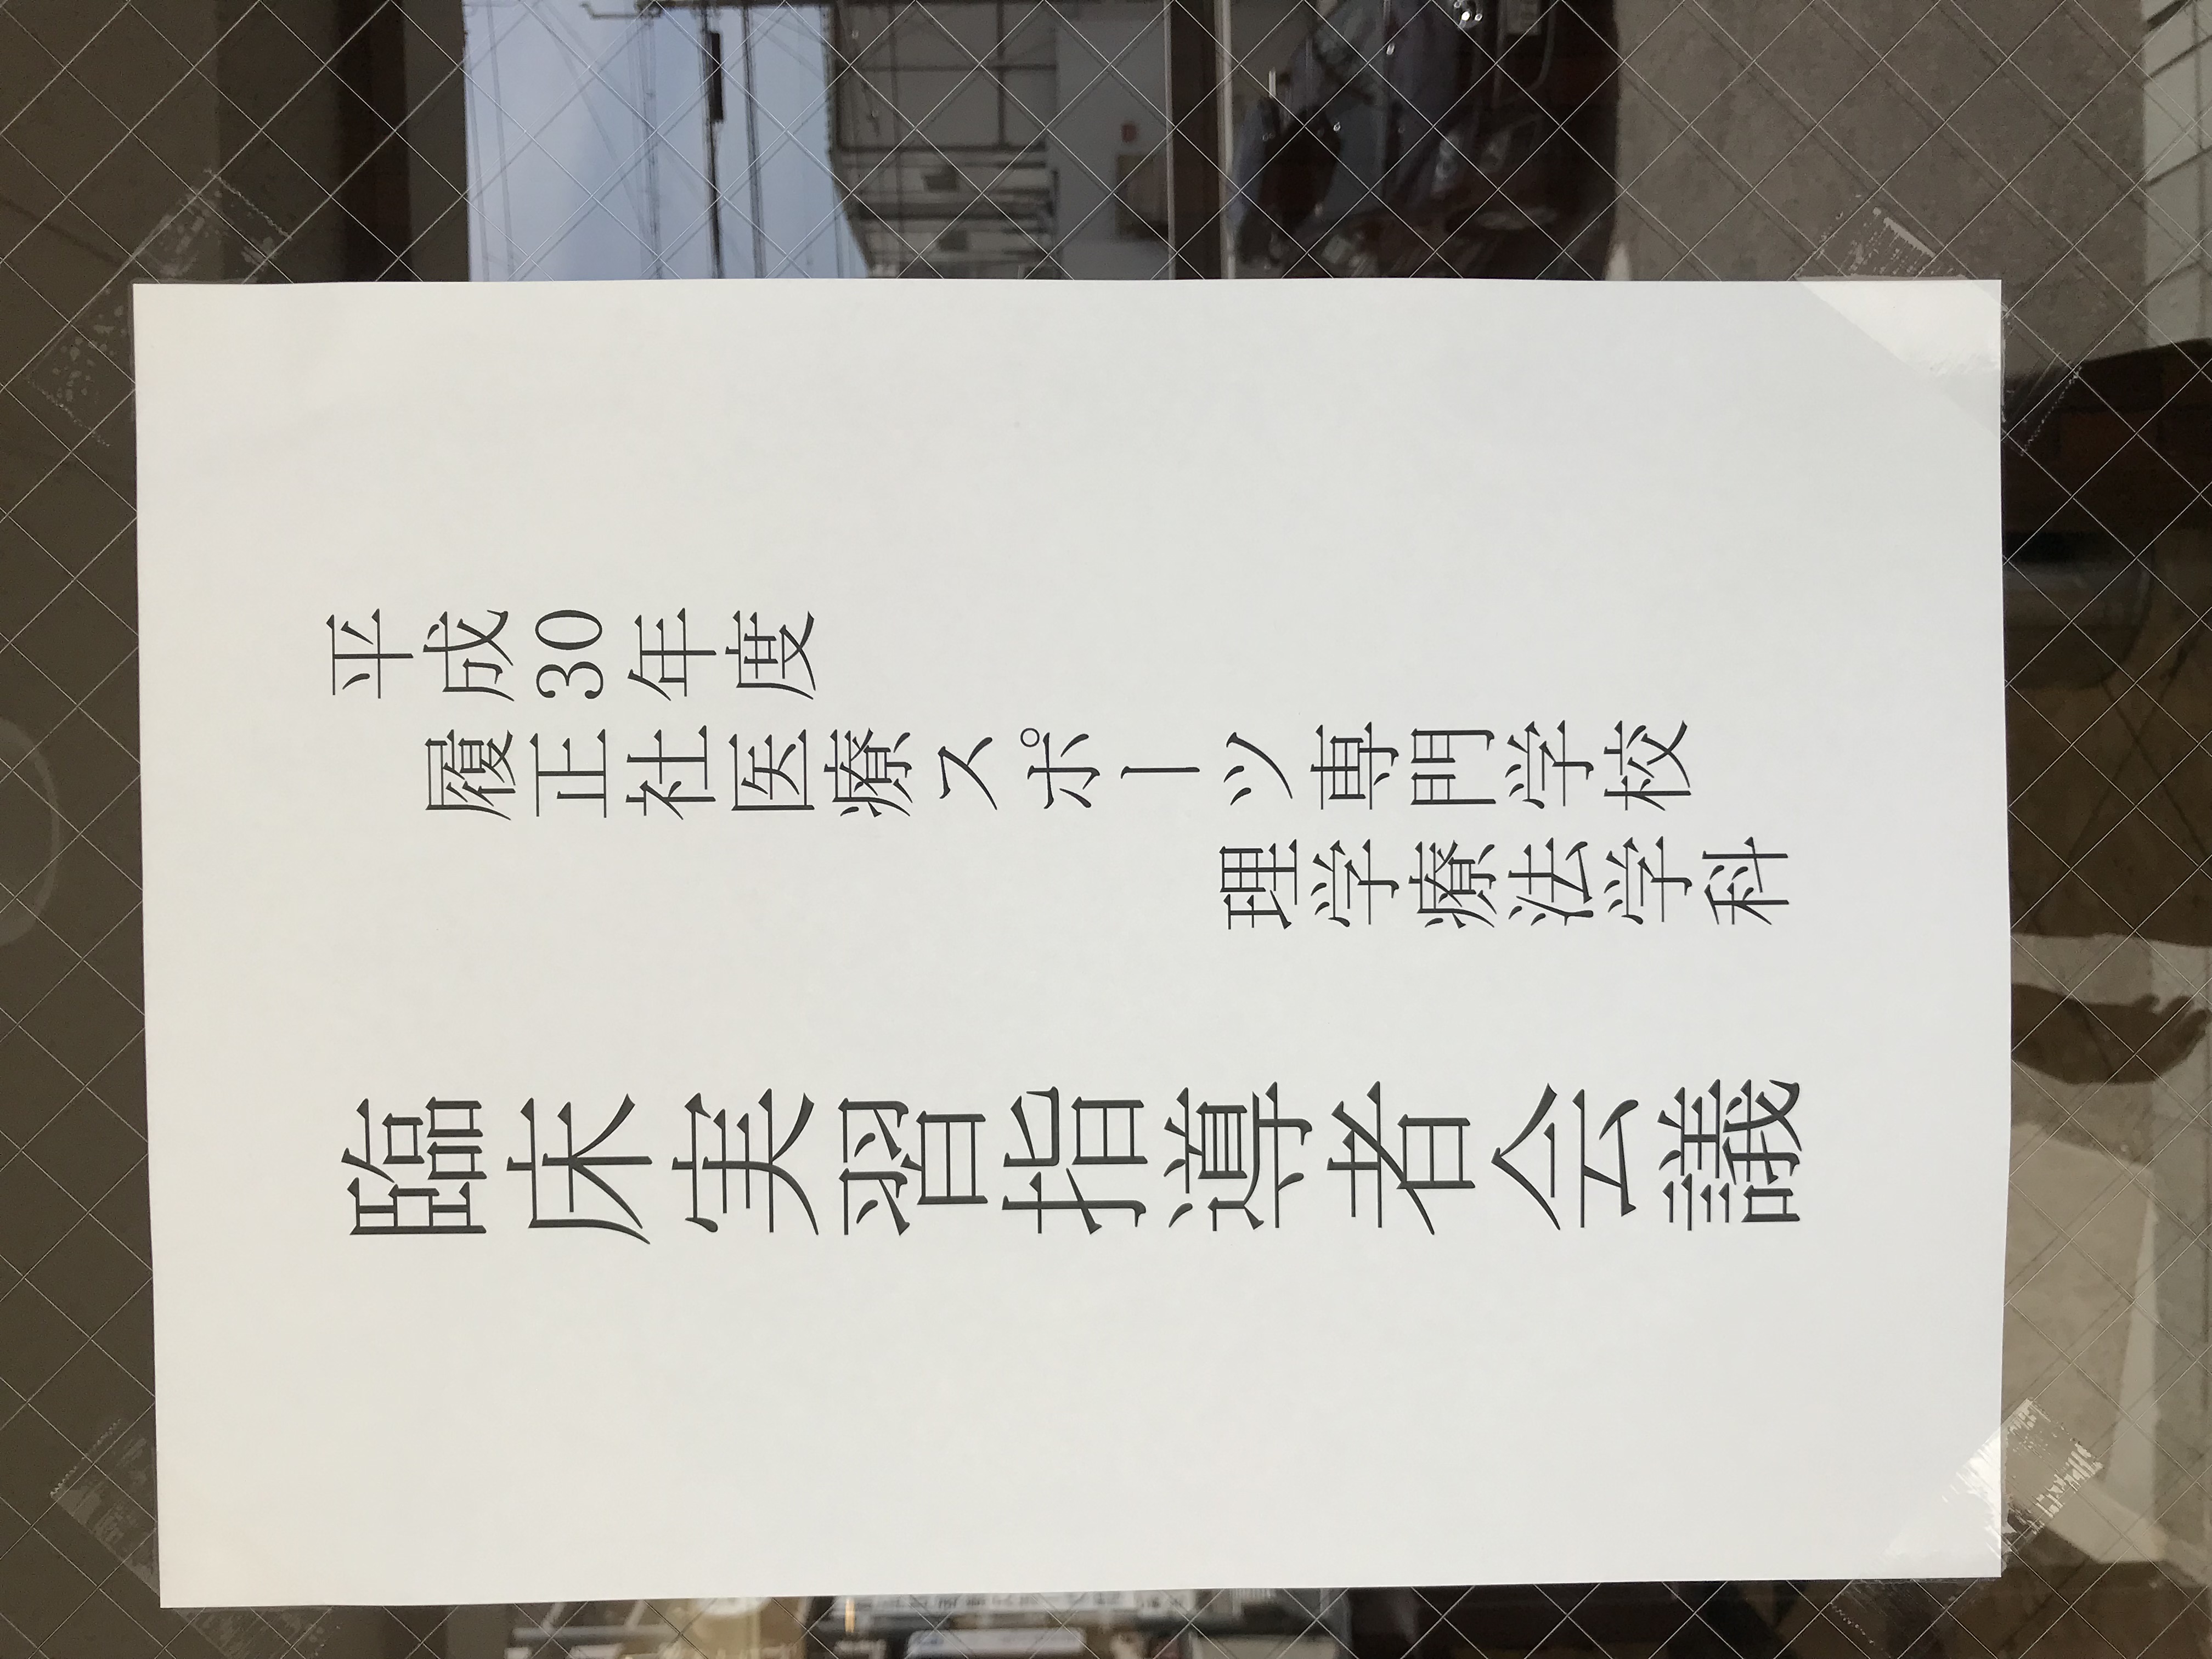 平成30年度
履正社医療スポーツ専門学校
理学療法学科
臨床実習指導者会議